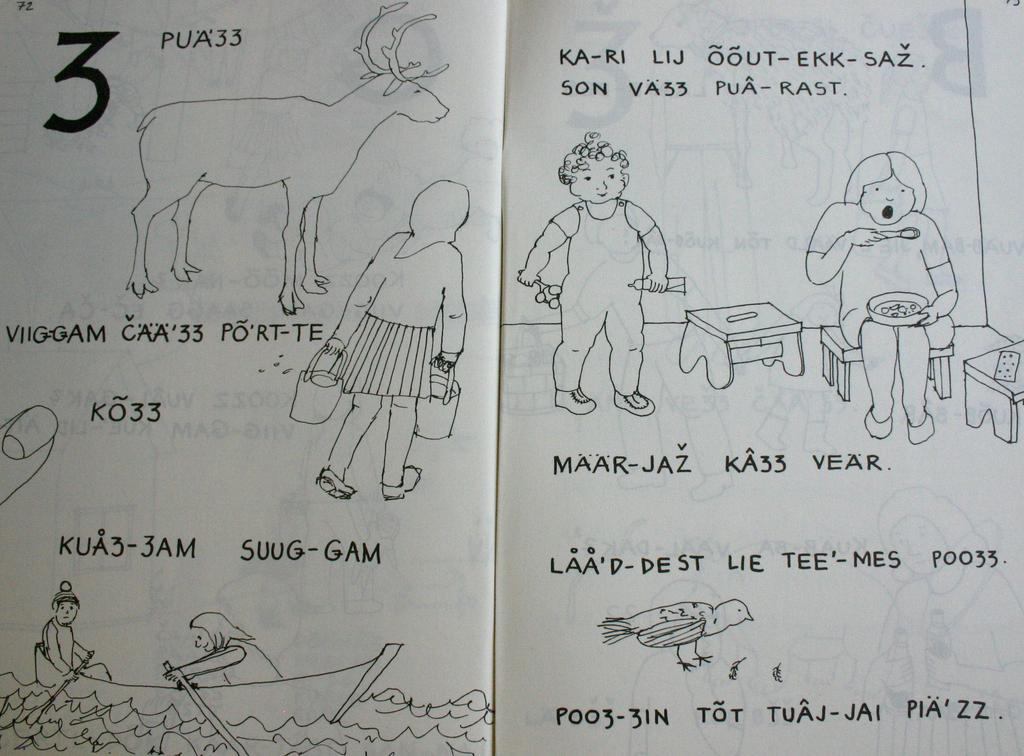 72
Ʒ
PUÄʹƷƷ
VIIG-GAM ČÄÄʹƷƷ PÕʹRT-TE
KÕƷƷ
KUÅƷ-ƷAM SUUG-GAM
KA-RI LIJ ÕÕUT-EKK-SAŽ.
SON VÄƷƷ PUÂ-RAST.
MÄÄR-JAŽ KÂƷƷ VEÄR.
LÅÅʹD-DEST LIE TEEʹ-MES POOƷƷ.
POOƷ-ƷIN TÕT TUÂJ-JAI PIÄʹZZ.